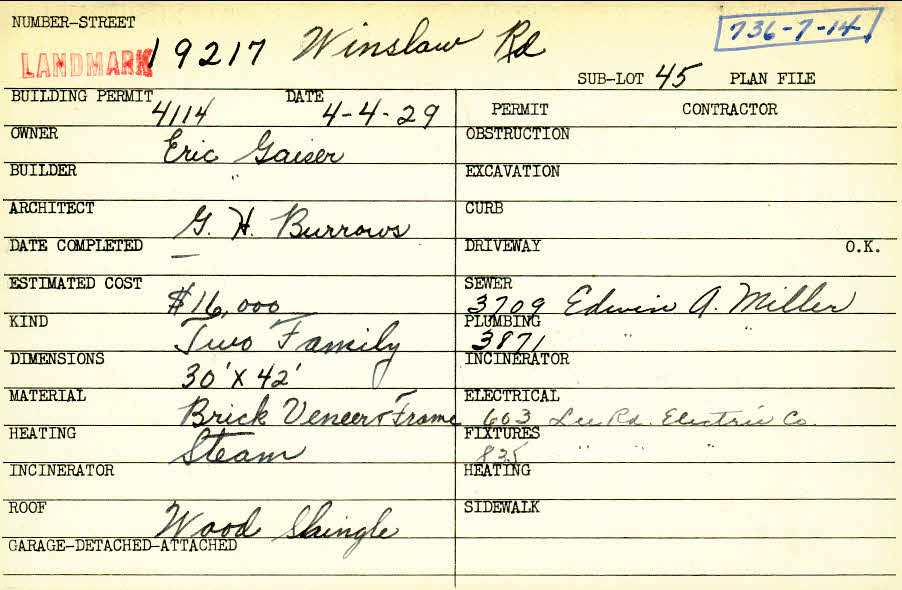 NUMBER-STREET
LANDMARK 19217 Winslow Rd
736-7-14
SUB-LOT 45 PLAN FILE
BUILDING PERMIT 4114 DATE 4-4-29
OWNER Eric Gaiser
BUILDER "
ARCHITECT G. H. Burrows
DATE COMPLETED —
ESTIMATED COST $16,000
KIND Two Family
DIMENSIONS 30' X 42'
MATERIAL Brick Veneer & Frame
HEATING Steam
INCINERATOR
ROOF Wood Shingle
GARAGE-DETACHED-ATTACHED
PERMIT CONTRACTOR
OBSTRUCTION
EXCAVATION
CURB
DRIVEWAY O.K.
SEWER 3709 Edwin A. Miller
PLUMBING 3871 " "
INCINERATOR
ELECTRICAL 603 Lee Rd. Electric Co.
FIXTURES 835 " "
HEATING
SIDEWALK